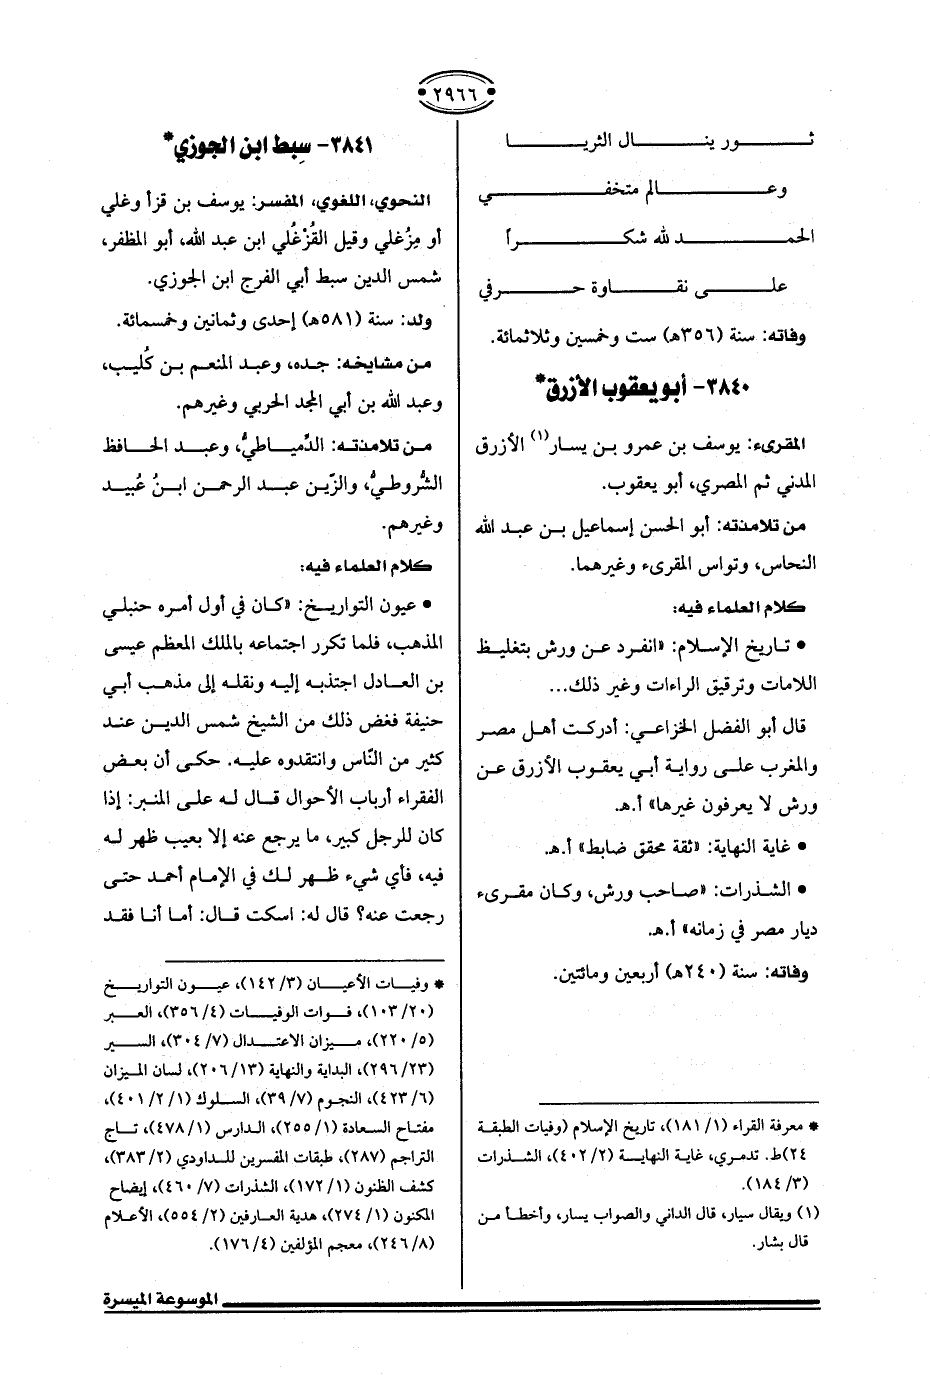 ٢٩٦٦
ثور ينال الثريا
وعالم متخفي
الحمد لله شكراً
على نقاوة حرفي
وفاته: سنة (٣٥٦هـ) ست وخمسين وثلاثمائة.
٣٨٤٠- أبو يعقوب الأزرق*
المقرىء: يوسف بن عمرو بن يسار(١) الأزرق
المدني ثم المصري، أبو يعقوب.
من تلامذته: أبو الحسن إسماعيل بن عبد الله
النحاس، وتواس المقرىء وغيرهما.
كلام العلماء فيه:
• تاريخ الإسلام: «انفرد عن ورش بتغليظ
اللامات وترقيق الراءات وغير ذلك...
قال أبو الفضل الخزاعي: أدركت أهل مصر
والمغرب على رواية أبي يعقوب الأزرق عن
ورش لا يعرفون غيرها» أ.هـ.
• غاية النهاية: «ثقة محقق ضابط» أ.هـ.
• الشذرات: «صاحب ورش، وكان مقرىء
ديار مصر في زمانه» أ.هـ.
وفاته: سنة (٢٤٠هـ) أربعين ومائتين.
* معرفة القراء (١/ ١٨١)، تاريخ الإسلام (وفيات الطبقة
٢٤)ط. تدمري، غاية النهاية (٢/ ٤٠٢)، الشذرات
(٣/ ١٨٤).
(١) ويقال سيار، قال الداني والصواب يسار، وأخطأ من
قال بشار.
٣٨٤١- سِبط ابن الجوزي*
النحوي، اللغوي، المفسر: يوسف بن قزأ وغلي
أو مِزُغلي وقيل القُزْغُلي ابن عبد الله، أبو المظفر،
شمس الدين سبط أبي الفرج ابن الجوزي.
ولد: سنة (٥٨١هـ) إحدى وثمانين وخمسمائة.
من مشايخه: جده، وعبد المنعم بن كُليب،
وعبد الله بن أبي المجد الحربي وغيرهم.
من تلامذته: الدِّمياطيُّ، وعبد الحافظ
الشُّروطيُّ، والزّين عبد الرحمن ابنُ عُبيد
وغيرهم.
كلام العلماء فيه:
• عيون التواريخ: «كان في أول أمره حنبلي
المذهب، فلما تكرر اجتماعه بالملك المعظم عيسى
بن العادل اجتذبه إليه ونقله إلى مذهب أبي
حنيفة فغض ذلك من الشيخ شمس الدين عند
كثير من النّاس وانتقدوه عليه. حكى أن بعض
الفقراء أرباب الأحوال قال له على المنبر: إذا
كان للرجل كبير، ما يرجع عنه إلا بعيب ظهر له
فيه، فأي شيء ظهر لك في الإمام أحمد حتى
رجعت عنه؟ قال له: اسكت قال: أما أنا فقد
* وفيات الأعيان (٣/ ١٤٢)، عيون التواريخ
(٢٠/ ١٠٣)، فوات الوفيات (٤/ ٣٥٦)، العبر
(٥/ ٢٢٠)، ميزان الاعتدال (٧/ ٣٠٤)، السير
(٢٣/ ٢٩٦)، البداية والنهاية (١٣/ ٢٠٦)، لسان الميزان
(٦/ ٤٢٣)، النجوم (٧/ ٣٩)، السلوك (١/ ٢/ ٤٠١)،
مفتاح السعادة (١/ ٢٥٥)، الدارس (١/ ٤٧٨)، تاج
التراجم (٢٨٧)، طبقات المفسرين للداودي (٢/ ٣٨٣)،
كشف الظنون (١/ ١٧٢)، الشذرات (٧/ ٤٦٠)، إيضاح
المكنون (١/ ٢٧٤)، هدية العارفين (٢/ ٥٥٤)، الأعلام
(٨/ ٢٤٦)، معجم المؤلفين (٤/ ١٧٦).
الموسوعة الميسرة